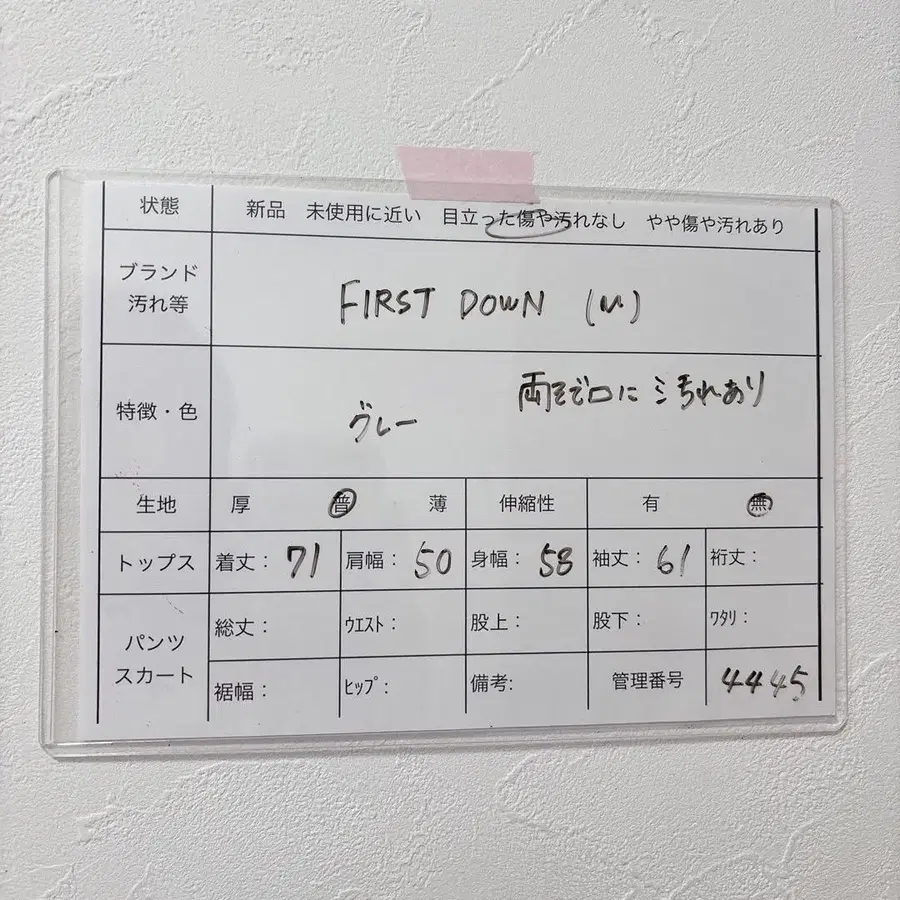 状態 新品 未使用に近い 目立った傷や汚れなし やや傷や汚れあり
ブランド
汚れ等
FIRST DOWN (M)
特徴・色
両そで口に汚れあり
グレー
生地 厚 普 薄 伸縮性 有 無
トップス 着丈: 71 肩幅: 50 身幅: 58 袖丈: 61 裄丈:
パンツ
スカート
総丈: ウエスト: 股上: 股下: ワタリ:
裾幅: ヒップ: 備考: 管理番号 4445